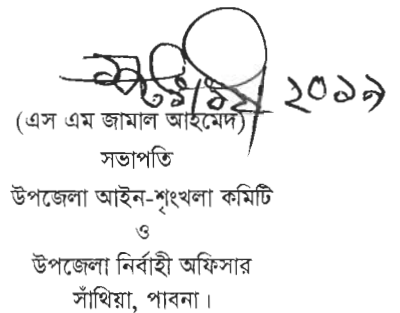 ২০১৯
(এস এম জামাল আহমেদ)
সভাপতি
উপজেলা আইন-শৃংখলা কমিটি
ও
উপজেলা নির্বাহী অফিসার
সাঁথিয়া, পাবনা।